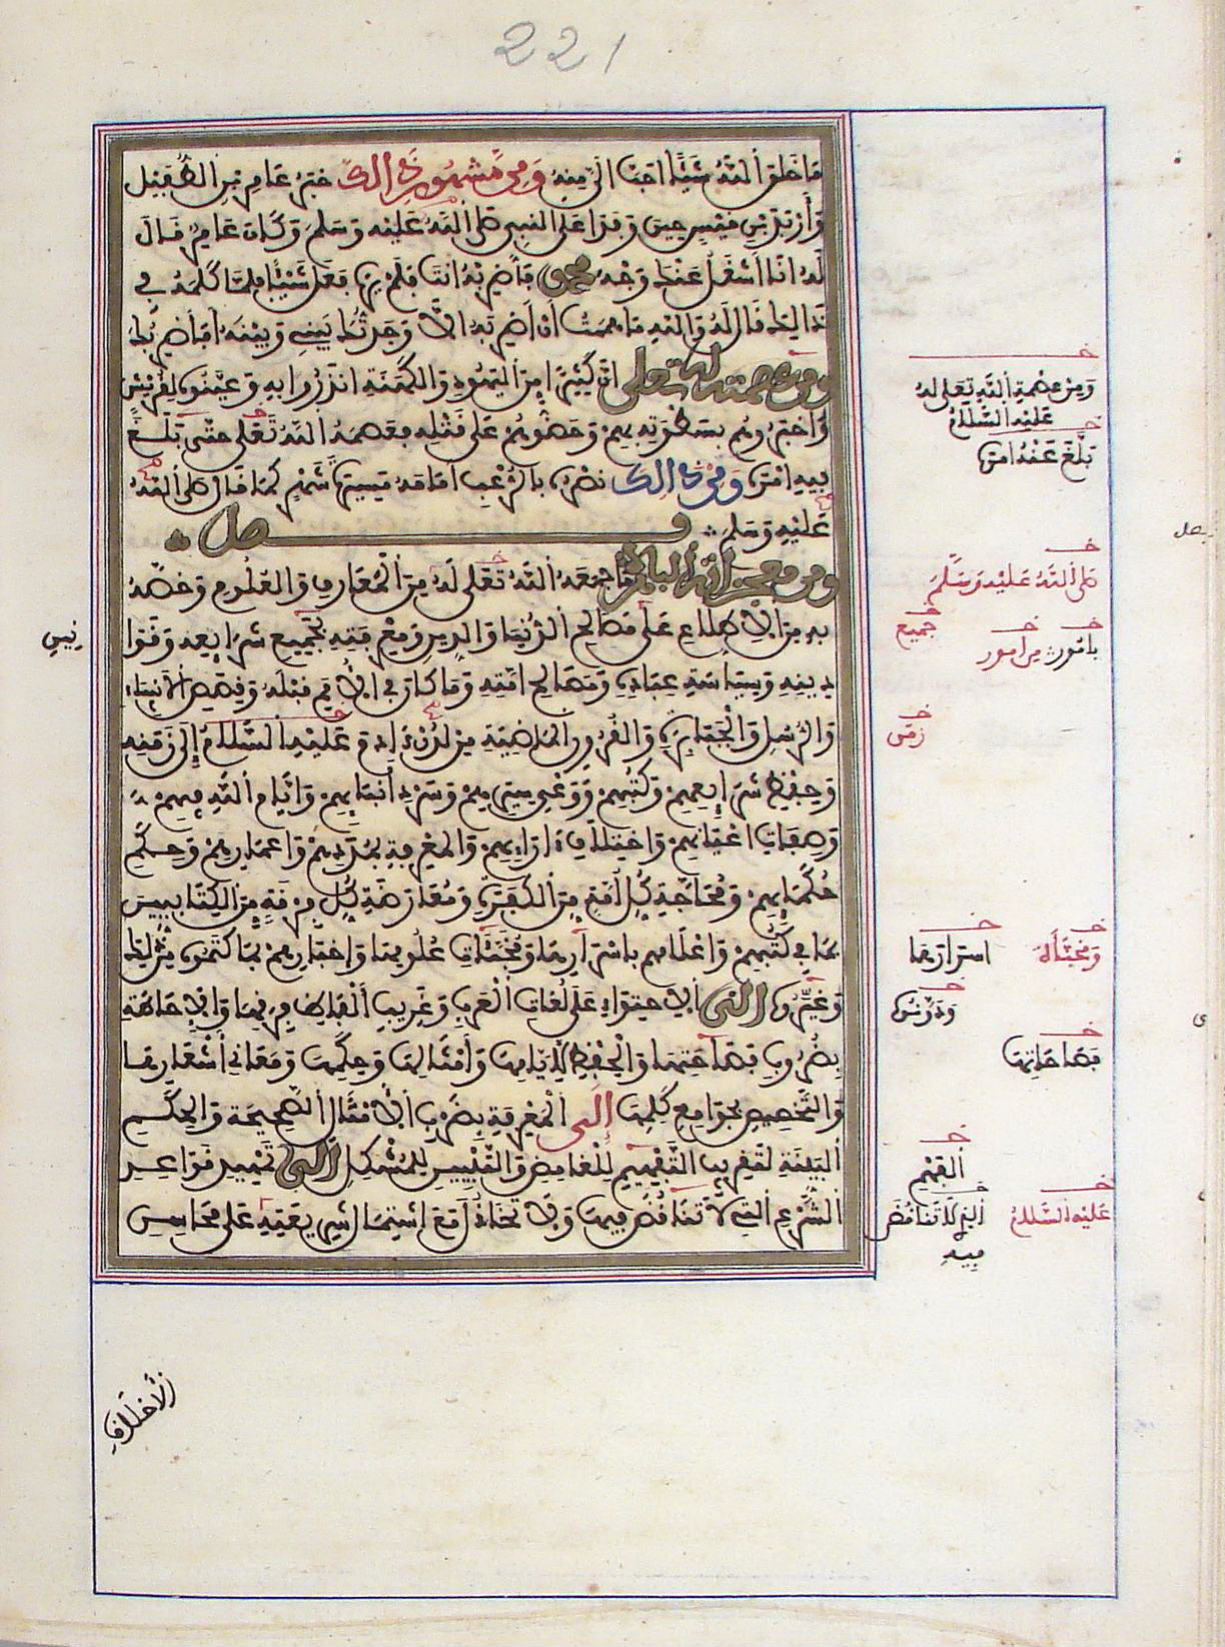 221
مَا خَلَقَ اللَّهُ شَيْئًا أَحَبَّ إِلَيَّ مِنْهُ وَمِنْ مَشْهُورِ ذَلِكَ خَبَرُ عَامِرِ بْنِ الطُّفَيْلِ
وَأَرْبَدَ بْنِ قَيْسٍ حِينَ وَفَدَا عَلَى النَّبِيِّ صَلَّى اللَّهُ عَلَيْهِ وَسَلَّمَ وَكَانَ عَامِرٌ قَالَ
لَهُ أَنَا أَشْغَلُ عَنْكَ وَجْهَ مُحَمَّدٍ فَاضْرِبْهُ أَنْتَ فَلَمْ يَرَهُ فَعَلَ شَيْئًا فَلَمَّا كَلَّمَهُ فِي
ذَالِكَ قَالَ لَهُ وَاللَّهِ مَا هَمَمْتُ أَنْ أَضْرِبَهُ إِلَّا وَجَدْتُكَ بَيْنِي وَبَيْنَهُ أَفَأَضْرِبُكَ
ومن عصمته له تعلى أَنَّ كَثِيرًا مِنَ الْيَهُودِ وَالْكَهَنَةِ أَنْذَرُوا بِهِ وَعَيَّنُوهُ لِقُرَيْشٍ
وَأَخْبَرُوهُمْ بِسَطْوَتِهِ بِهِمْ وَحَضُّوهُمْ عَلَى قَتْلِهِ فَعَصَمَهُ اللَّهُ تَعَلَى حَتَّى بَلَغَ
فِيهِ أَمْرَهُ وَمِنْ ذَالِكَ نَصْرُهُ بِالرُّعْبِ أَمَامَهُ مَسِيرَةَ شَهْرٍ كَمَا قَالَ صَلَّى اللَّهُ
عَلَيْهِ وَسَلَّمَ فصل
ومن معجزاته الباهرة مَا جَمَعَهُ اللَّهُ تَعَلَى لَهُ مِنَ الْمَعَارِفِ وَالْعُلُومِ وَخَصَّهُ
بِهِ مِنَ الِاطِّلَاعِ عَلَى مَصَالِحِ الدُّنْيَا وَالدِّينِ وَمَعْرِفَتِهِ بِجَمِيعِ شَرَائِعِهِ وَقَوَا
نِينِ
دِينِهِ وَسِيَاسَةِ عِبَادِهِ وَمَصَالِحِ أُمَّتِهِ وَمَا كَانَ فِي الْأُمَمِ قَبْلَهُ وَقِصَصِ الْأَنْبِيَاءِ
وَالرُّسُلِ وَالْجَبَابِرَةِ وَالْقُرُونِ الْمَاضِيَةِ مِنْ لَدُنْ ءَادَمَ عَلَيْهِ السَّلَامُ إِلَى زَمَنِهِ
وَحِفْظِ شَرَائِعِهِمْ وَكُتُبِهِمْ وَوَعْيِ سِيَرِهِمْ وَسَرْدِ أَنْبَائِهِمْ وَأَيَّامِ اللَّهِ فِيهِمْ
وَصِفَاتِ أَعْيَانِهِمْ وَاخْتِلَافِ ءَارَائِهِمْ وَالْمَعْرِفَةِ بِمُدَدِهِمْ وَأَعْمَارِهِمْ وَحِكَمِ
حُكَمَائِهِمْ وَمُحَاجَّةِ كُلِّ أُمَّةٍ مِنَ الْكَفَرَةِ وَمُعَارَضَةِ كُلِّ فِرْقَةٍ مِنَ الْكِتَابِيِّينَ
بِمَا فِي كُتُبِهِمْ وَإِعْلَامِهِمْ بِأَسْرَارِهَا وَمُخَبَّئَاتِ عُلُومِهَا وَإِخْبَارِهِمْ بِمَا كَتَمُوهُ مِنْ ذَلِكَ
وَغَيَّرُوهُ إلى الِاحْتِوَاءِ عَلَى لُغَاتِ الْعَرَبِ وَغَرِيبِ أَلْفَاظِ فِرَقِهَا وَالْإِحَاطَةِ
بِضُرُوبِ فَصَاحَتِهَا وَالْحِفْظِ لِأَيَّامِهَا وَأَمْثَالِهَا وَحِكَمِهَا وَمَعَانِي أَشْعَارِهَا
وَالتَّخْصِيصِ بِجَوَامِعِ كَلِمِهَا إِلَى الْمَعْرِفَةِ بِضَرْبِ الْأَمْثَالِ الصَّحِيحَةِ وَالْحِكَمِ
الْبَيِّنَةِ لِتَقْرِيبِ التَّفْهِيمِ لِلْغَامِضِ وَالتَّبْيِينِ لِلْمُشْكِلِ إِلَى تَمْهِيدِ قَوَاعِدِ
الشَّرْعِ الَّتِي لَا تَنَاقُضَ فِيهَا وَلَا تَخَاذُلَ مَعَ اشْتِمَالِ شَرِيعَتِهِ عَلَى مَحَاسِنِ
الْأَخْلَاقِ
وَمِنْ عِصْمَةِ اللَّهِ تَعَلَى لَهُ
عَلَيْهِ السَّلَامُ
بَلَّغَ عَنْهُ أَمْرَهُ
صَلَّى اللَّهُ عَلَيْهِ وَسَلَّمَ
جَمِيعِ
بِأُمُورِ مِن أُمُورِ
زَمَنِ
وَمُخَبَّأَةِ أَسْرَارِهَا
وَدَرْسُهُ
فَصَاحَاتِهَا
الْفَهْمِ
عَلَيْهِ السَّلَامُ الَّذِي لَا تَنَاقُضَ
فِيهِ